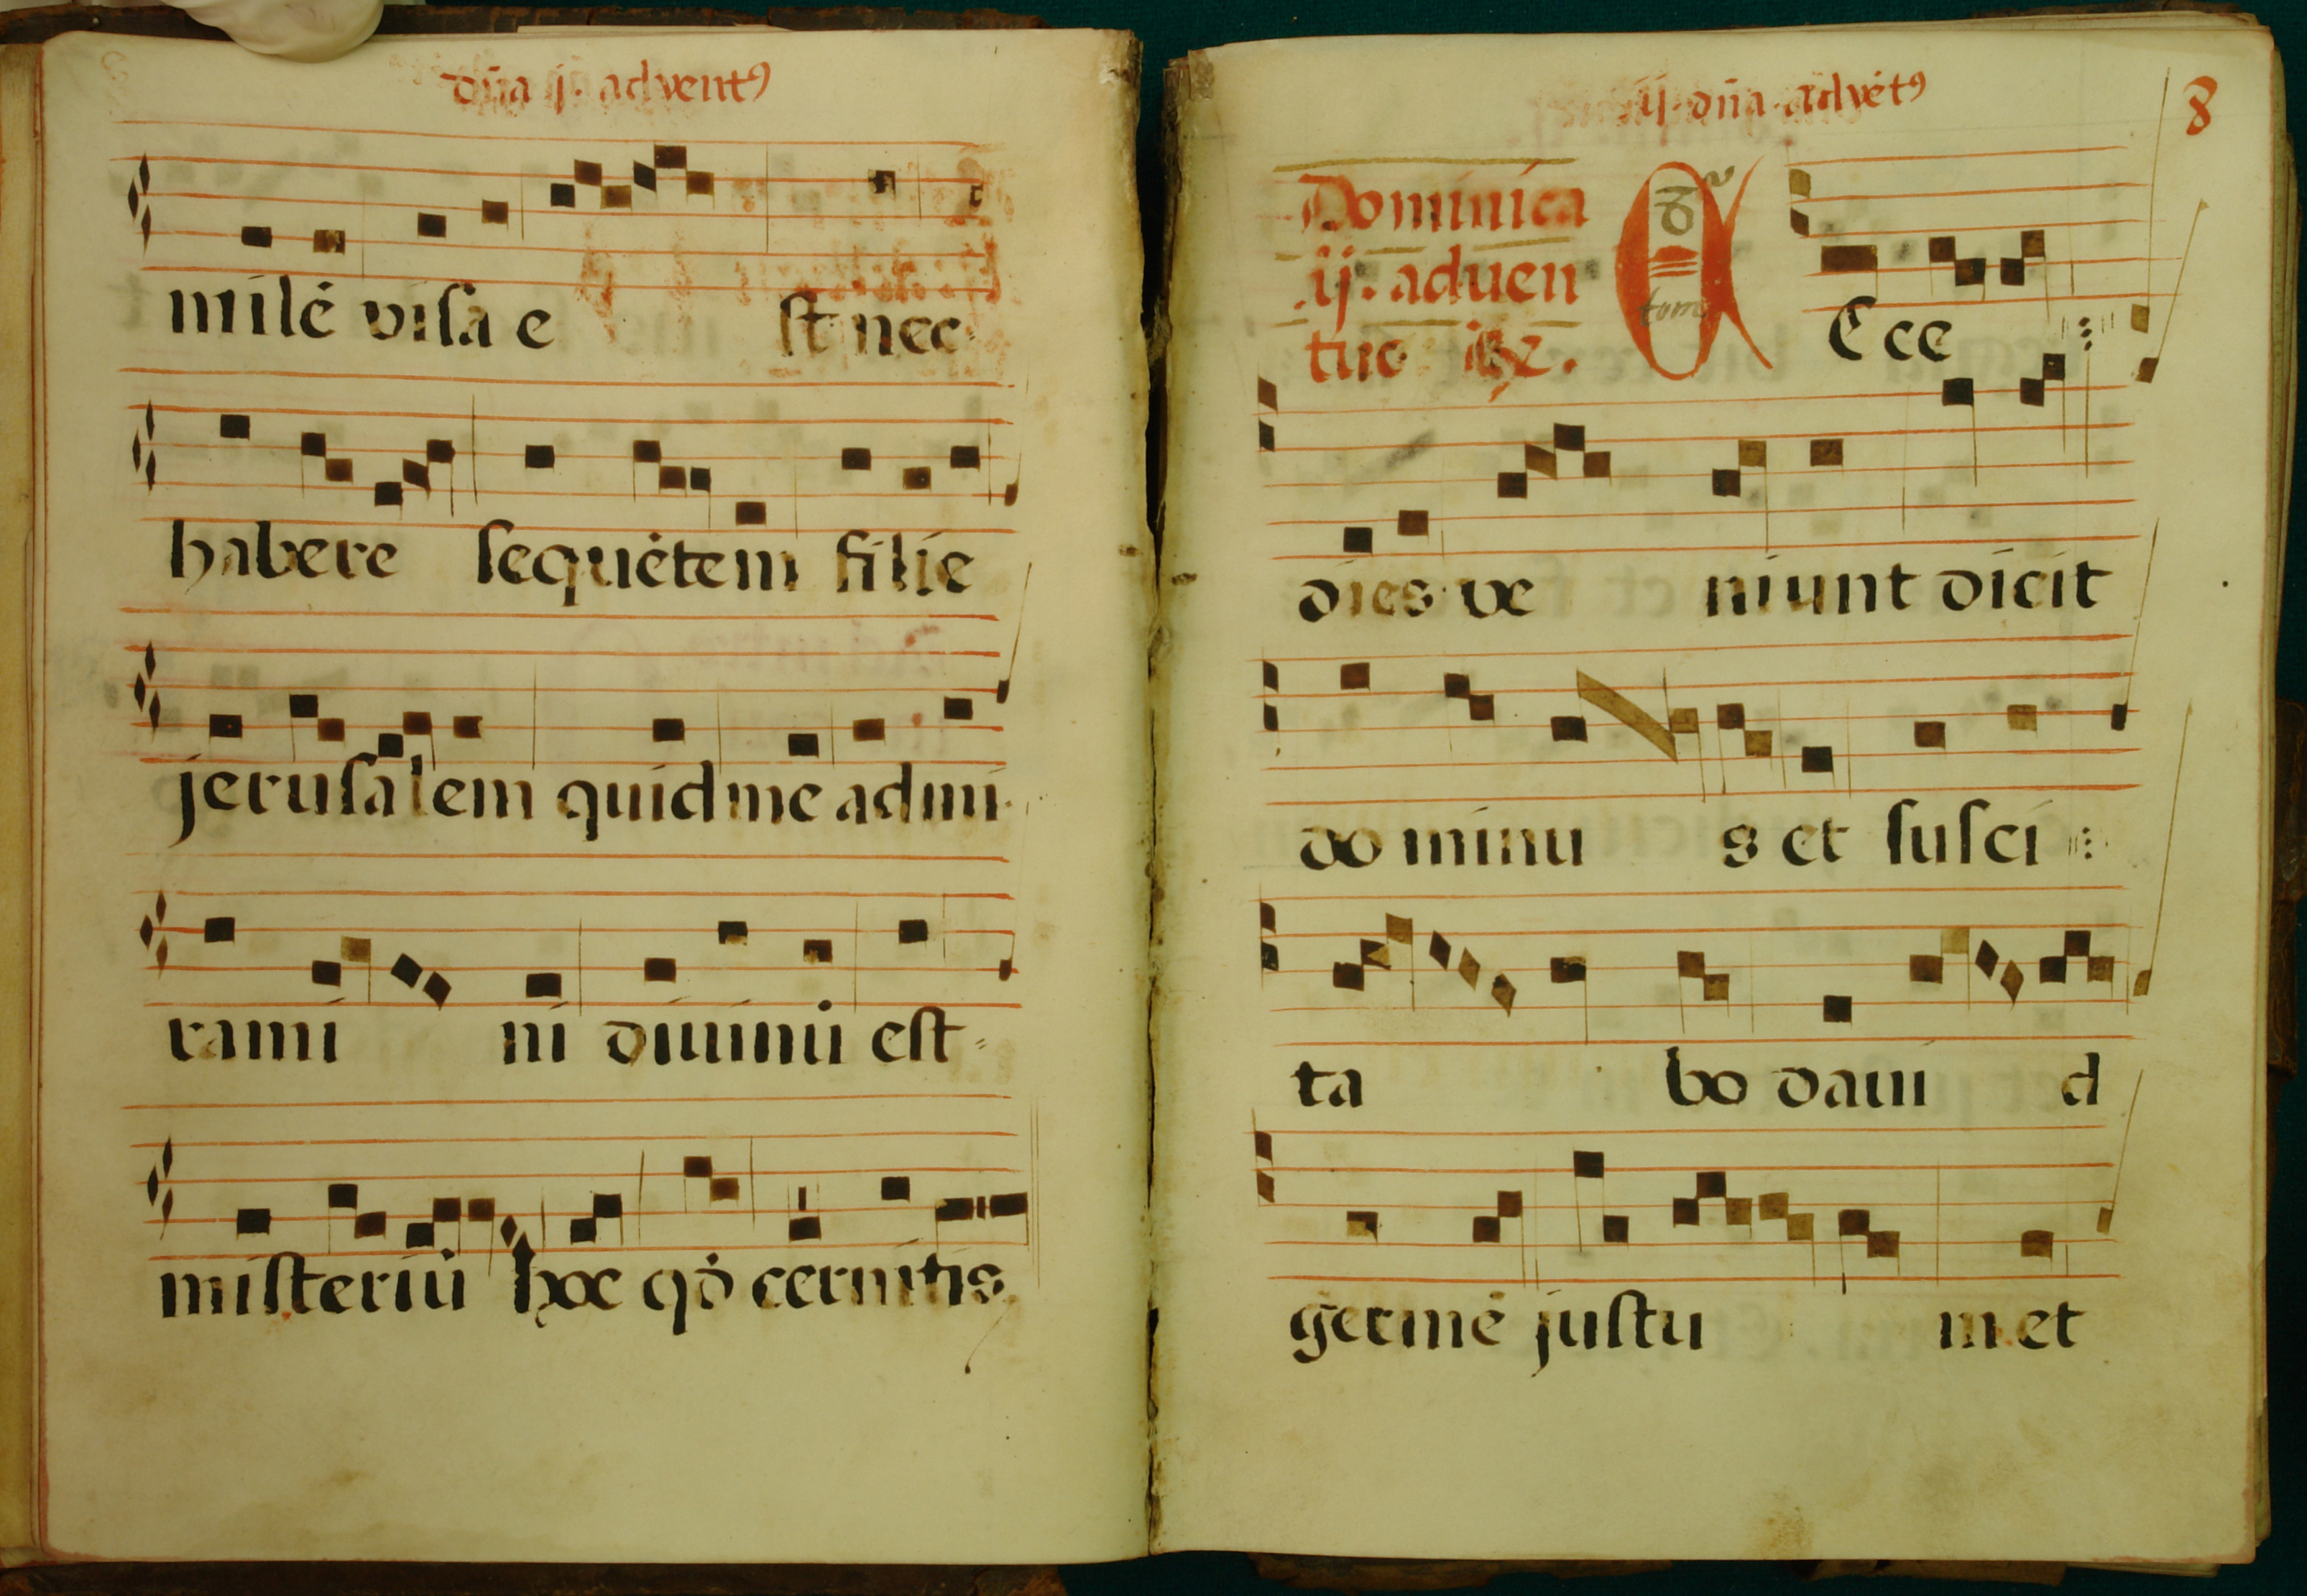 dña ij. adventꝰ
milē visa e st nec
habere sequētem filie
jerusalem quid me admi
rami ni diuinū est
misteriū hoc qđ cernitis
ij. dña. advētꝰ
8
Dominica
ij. aduen
tus
Ecce
dies ve niunt dicit
do minu s et susci
ta bo daui d
germē justu m et